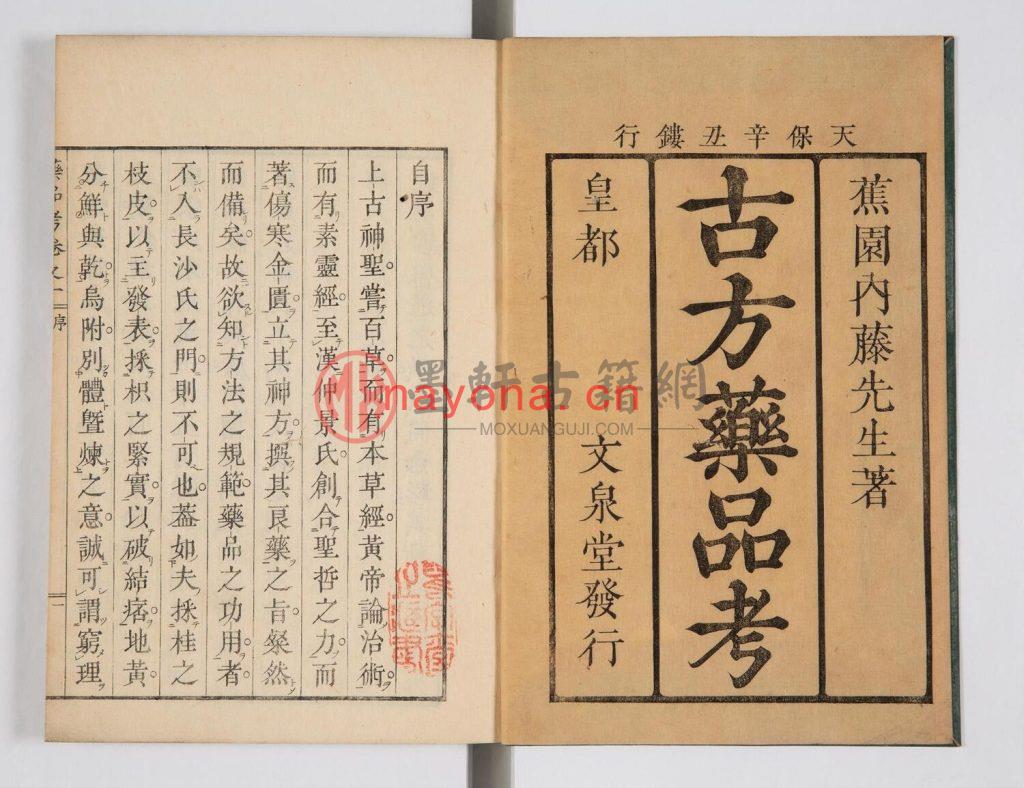 天保辛丑鏤行
蕉園內藤先生著
古方藥品考
皇都 文泉堂發行
自序
上古神聖嘗百草而有本草經黃帝論治術
而有素靈經至漢仲景氏創合聖哲之力而
著傷寒金匱立其神方撰其良藥之旨粲然
而備矣故欲知方法之規範藥品之功用者
不入長沙氏之門則不可也葢如夫採桂之
枝皮以主發表採枳之緊實以破結痞地黃
分鮮與乾烏附別體曁煉之意誠可謂窮理
序
一
墨軒古籍網
MOXUANGUJI.COM
mayona.cn